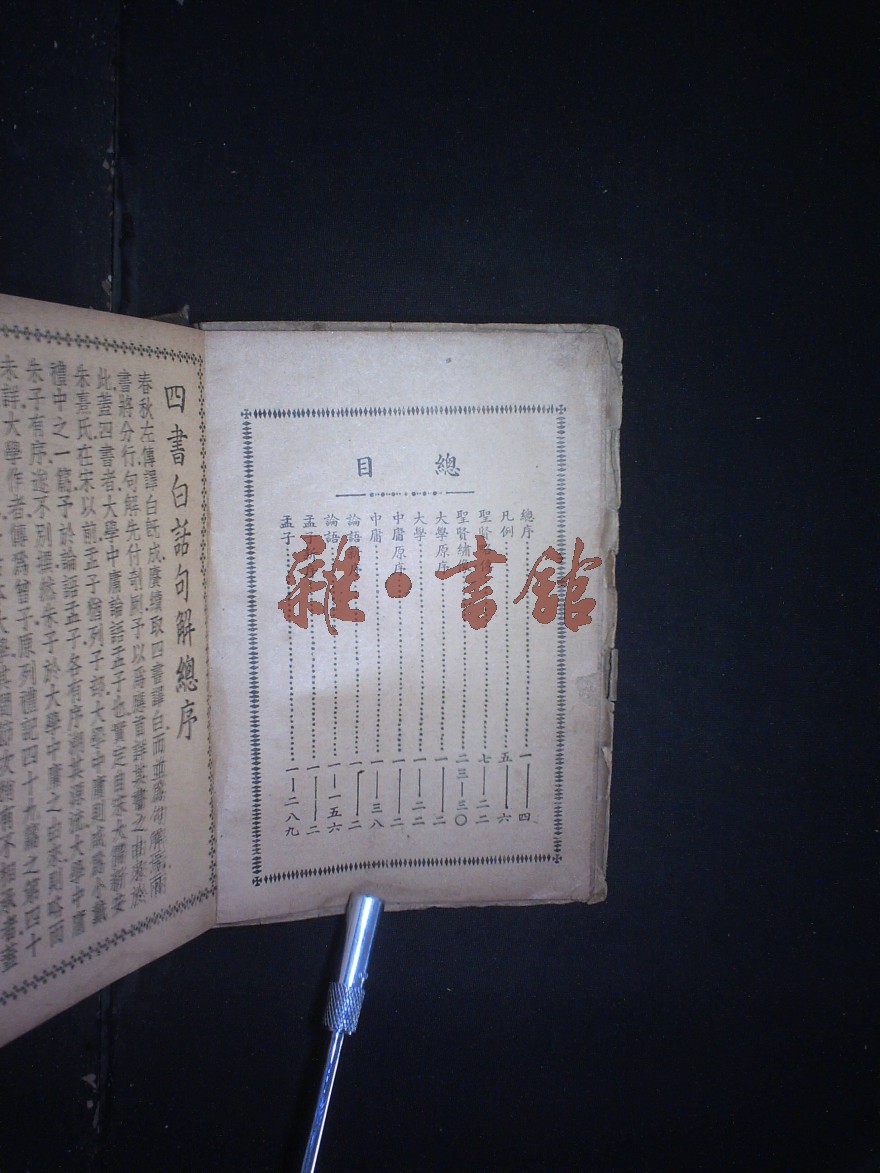 總目
總序……一—四
凡例……五—六
聖賢……七—二二
聖賢繡……二三—三〇
大學原序……一—二
大學……一—二二
中庸原序……一—二
中庸……一—三八
論語……一—二
論語……一—一五六
孟子……一—二
孟子……一—二八九
雜·書館
四書白話句解總序
春秋左傳譯白既成賡續取四書譯白而並爲句解焉兩
書將分行句解先付剞劂予以爲應首詳其書之由來於
此蓋四書者大學中庸論語孟子也實定自宋大儒新安
朱熹氏在宋以前孟子猶列子部大學中庸則咸爲小戴
禮中之一篇予於論語孟子各有序溯其源流大學中庸
朱子有序遂不別撰然朱子於大學中庸之由來則略而
未詳大學作者傳爲曾子原列禮記四十九篇之第四十